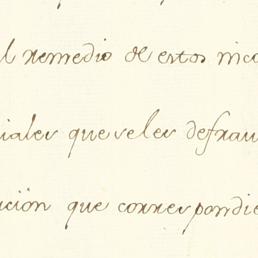 el remedio de estos inco
iales que se les defrau
ución que correspondie